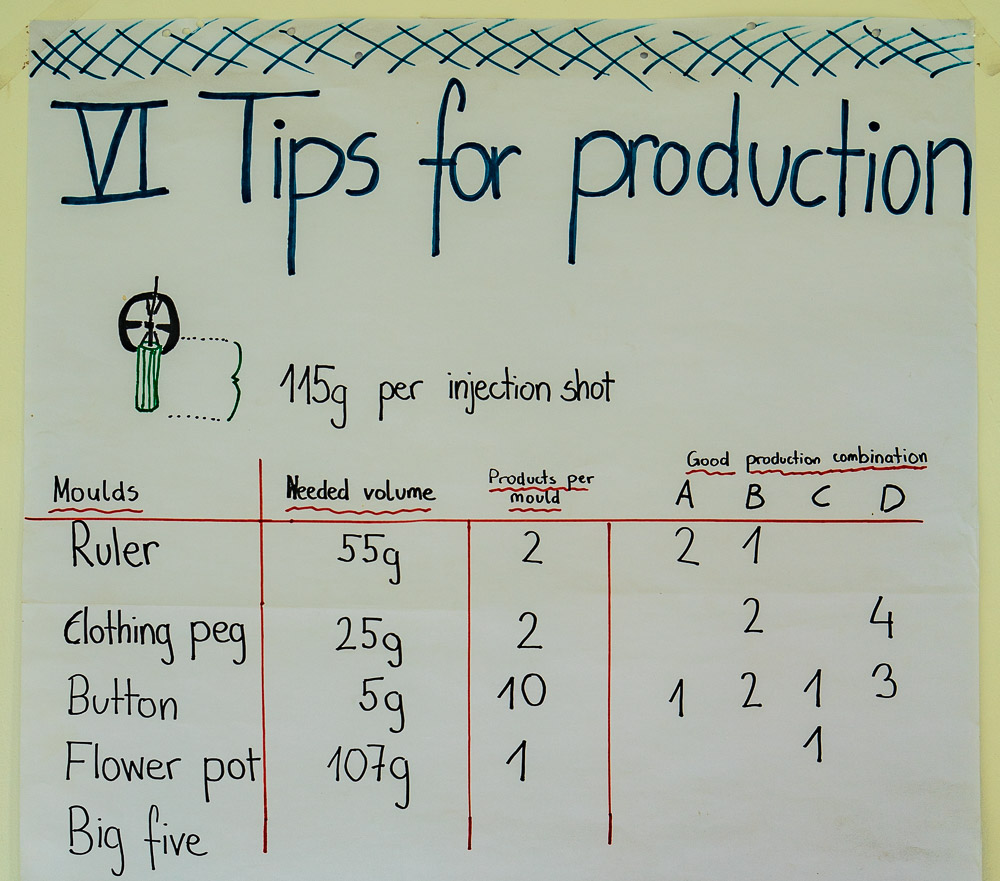 VI Tips for production
115g per injection shot
Good production combination
Moulds Needed volume Products per mould A B C D
Ruler 55g 2 2 1
Clothing peg 25g 2 2 4
Button 5g 10 1 2 1 3
Flower pot 107g 1 1
Big five